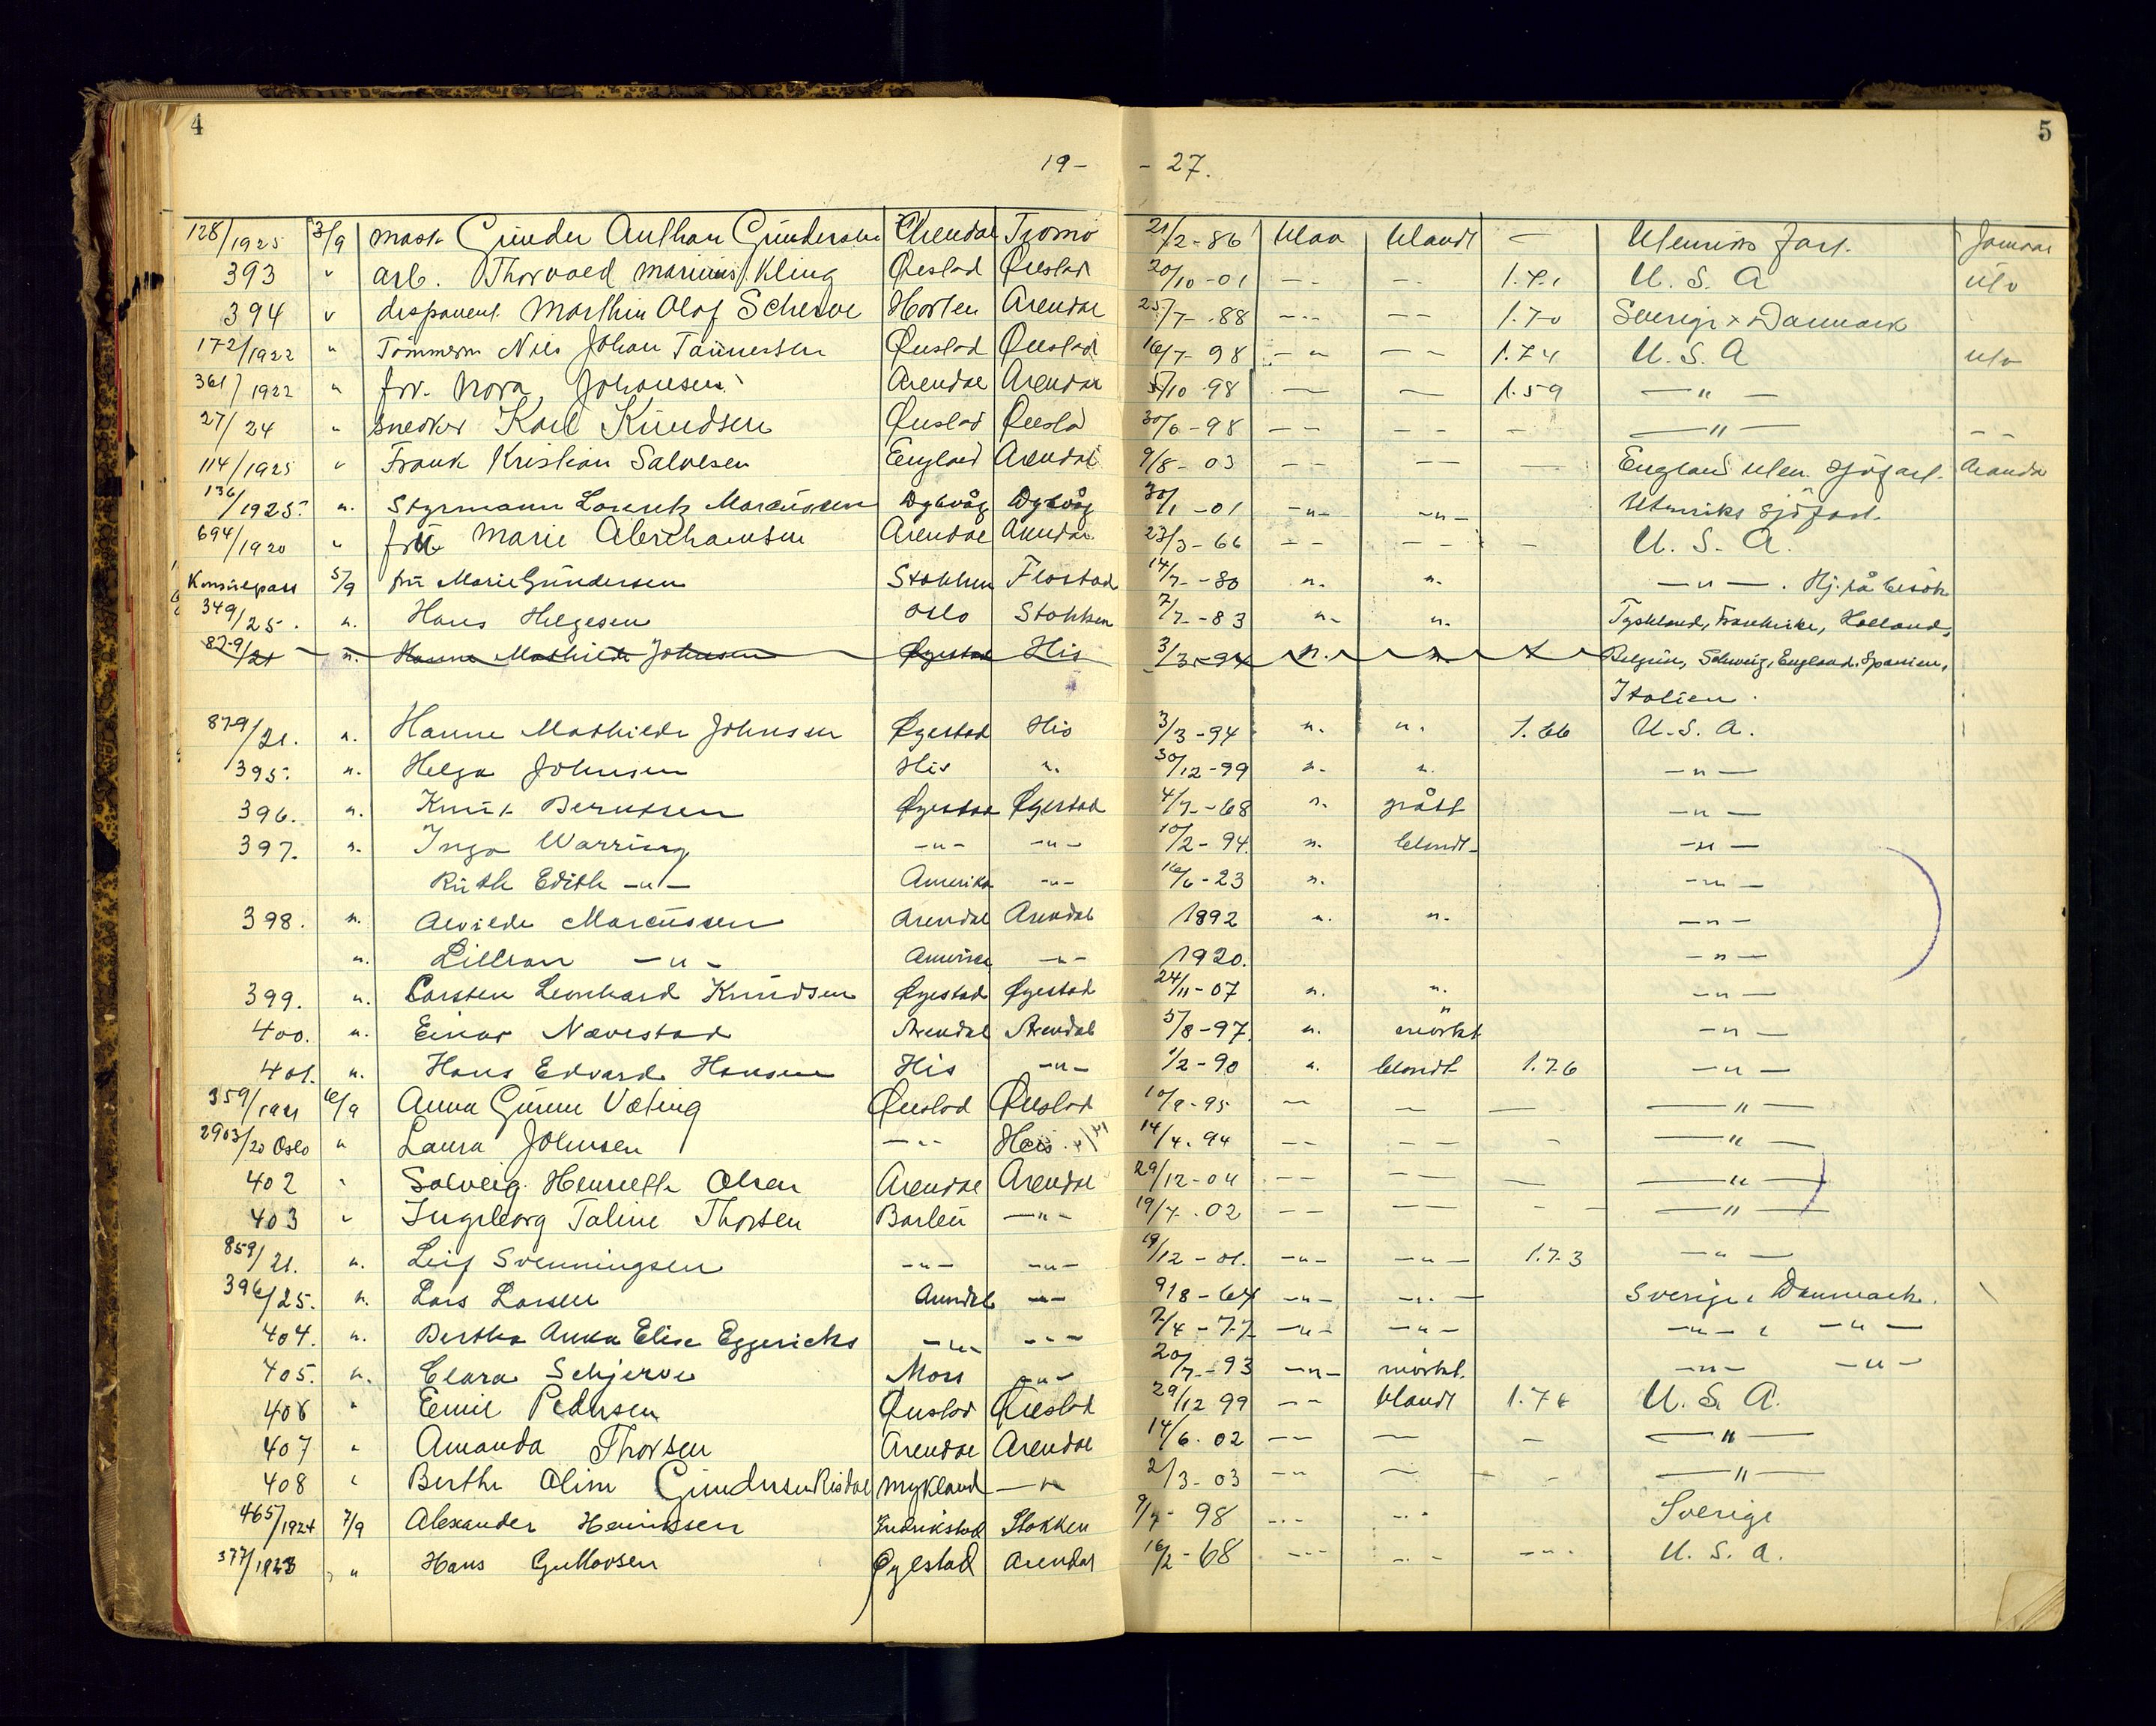 4
5
19- - 27.
128/1925 3/9 mask. Gunder Anthon Gundersen Arendal Tromö 21/2-86 blaa blandt — Utenriks fart.
393 " arb. Thorvald Marinius Kling Öiestad Öiestad 20/10-01 -- -- 1.71 U. S. A
394 " disponent Marthin Olaf Scherve Horten Arendal 25/7-88 -- -- 1.70 Sverige + Danmark
172/1922 " Tömmerm Nils Johan Tönnessen Öiestad Öiestad 16/7-98 -"- -- 1.74 U. S. A
361/1922 " frk. Nora Johansen Arendal Arendal 5/10-98 — — 1.59 —"—
27/24 " snedker Karl Knudsen Öiestad Öiestad 30/6-98 -- -- - —"—
114/1925 " Frank Kristian Salvesen England Arendal 9/8-03 -- -- — England uten. sjöfart. Arendal
136/1925. ". Styrmann Lorentz Marcussen Dybvåg Dybvåg 30/1-01 -"- -"- Utenriks sjöfart.
694/1920 " fru Marie Abrahamsen Arendal Arendal 23/3-66 -- -- - U. S. A.
Konsulpass 5/9 fru Marie Gundersen Stokken Flostad 14/7-80 ". ". —"—. Hj. på besök
349/25. ". Hans Helgesen Oslo Stokken 7/7-83 ". ". Tyskland, Frankrike, Holland,
879/21 ". Hanne Mathilde Johnsen Øyestad His 3/3-94 ". ". Belgien, Schweiz, England, Spanien,
Italien.
879/21. ". Hanne Mathilde Johnsen Øyestad His 3/3-94 ". ". 1.66 U. S. A.
395. ". Helga Johnsen His ". 30/12-99 ". ". -"-
396. ". Knut Berntsen Øyestad Øyestad 4/7-68 ". grått -"-
397. ". Inga Warring -"- -"- 10/2-94. ". blondt -"-
Ruth Edith -"- Amerika -"- 16/6-23 ". -"-
398. ". Alvilde Marcussen Arendal Arendal 1892 ". ". -"-
". Lillian -"- Amerika -"- 1920. -"-
399. ". Carsten Leonhard Knudsen Øyestad Øyestad 24/11-07 ". ". -"-
400. ". Einar Nævestad Arendal Arendal 5/8-97. ". mörkt -"-
401. ". Hans Edvard Hansen His -"- 1/2-90 ". blondt 1.76 -"-
359/1921 6/9 Anna Gunn Væting Öiestad Öiestad 10/9-95 — — — —"—
2903/20 Oslo " Laura Johnsen -"- His 14/4-94 -- -- - —"—
402 " Solveig Henriette Olsen Arendal Arendal 29/12-04 -- -- — —"—
403 " Ingeborg Taline Thorsen Barbu -"- 19/7-02 -- -- -- —"—
859/21. ". Leif Svenningsen -"- -"- 19/12-01. -"- -"- 1.73 -"-
396/25. ". Lars Larsen Arendal -"- 9/8-64 -"- -"- Sverige & Danmark.
404. ". Bertha Anna Elise Eggericks -"- -"- 7/4-77 -"- -"- -"- & -"-
405. ". Clara Schjerve Moss -"- 20/7-93 -"- mörkt. -"- -"-
406 " Emil Pedersen Öiestad Öiestad 29/12 99 -- blandt 1.76 U. S. A.
407 " Amanda Thorsen Arendal Arendal 14/6-02 -- — - —"—
408 " Berthe Oline Gundersen Risdal Mykland -"- 2/3-03 -- — - —"—
465/1924 7/9 Alexander Henriksen Fredrikstad Stokken 9/7-98 -"- -"- Sverige
377/1923 " Hans Gullovsen Øyestad Arendal 16/2-68 -"- -"- -"- U. S. A.